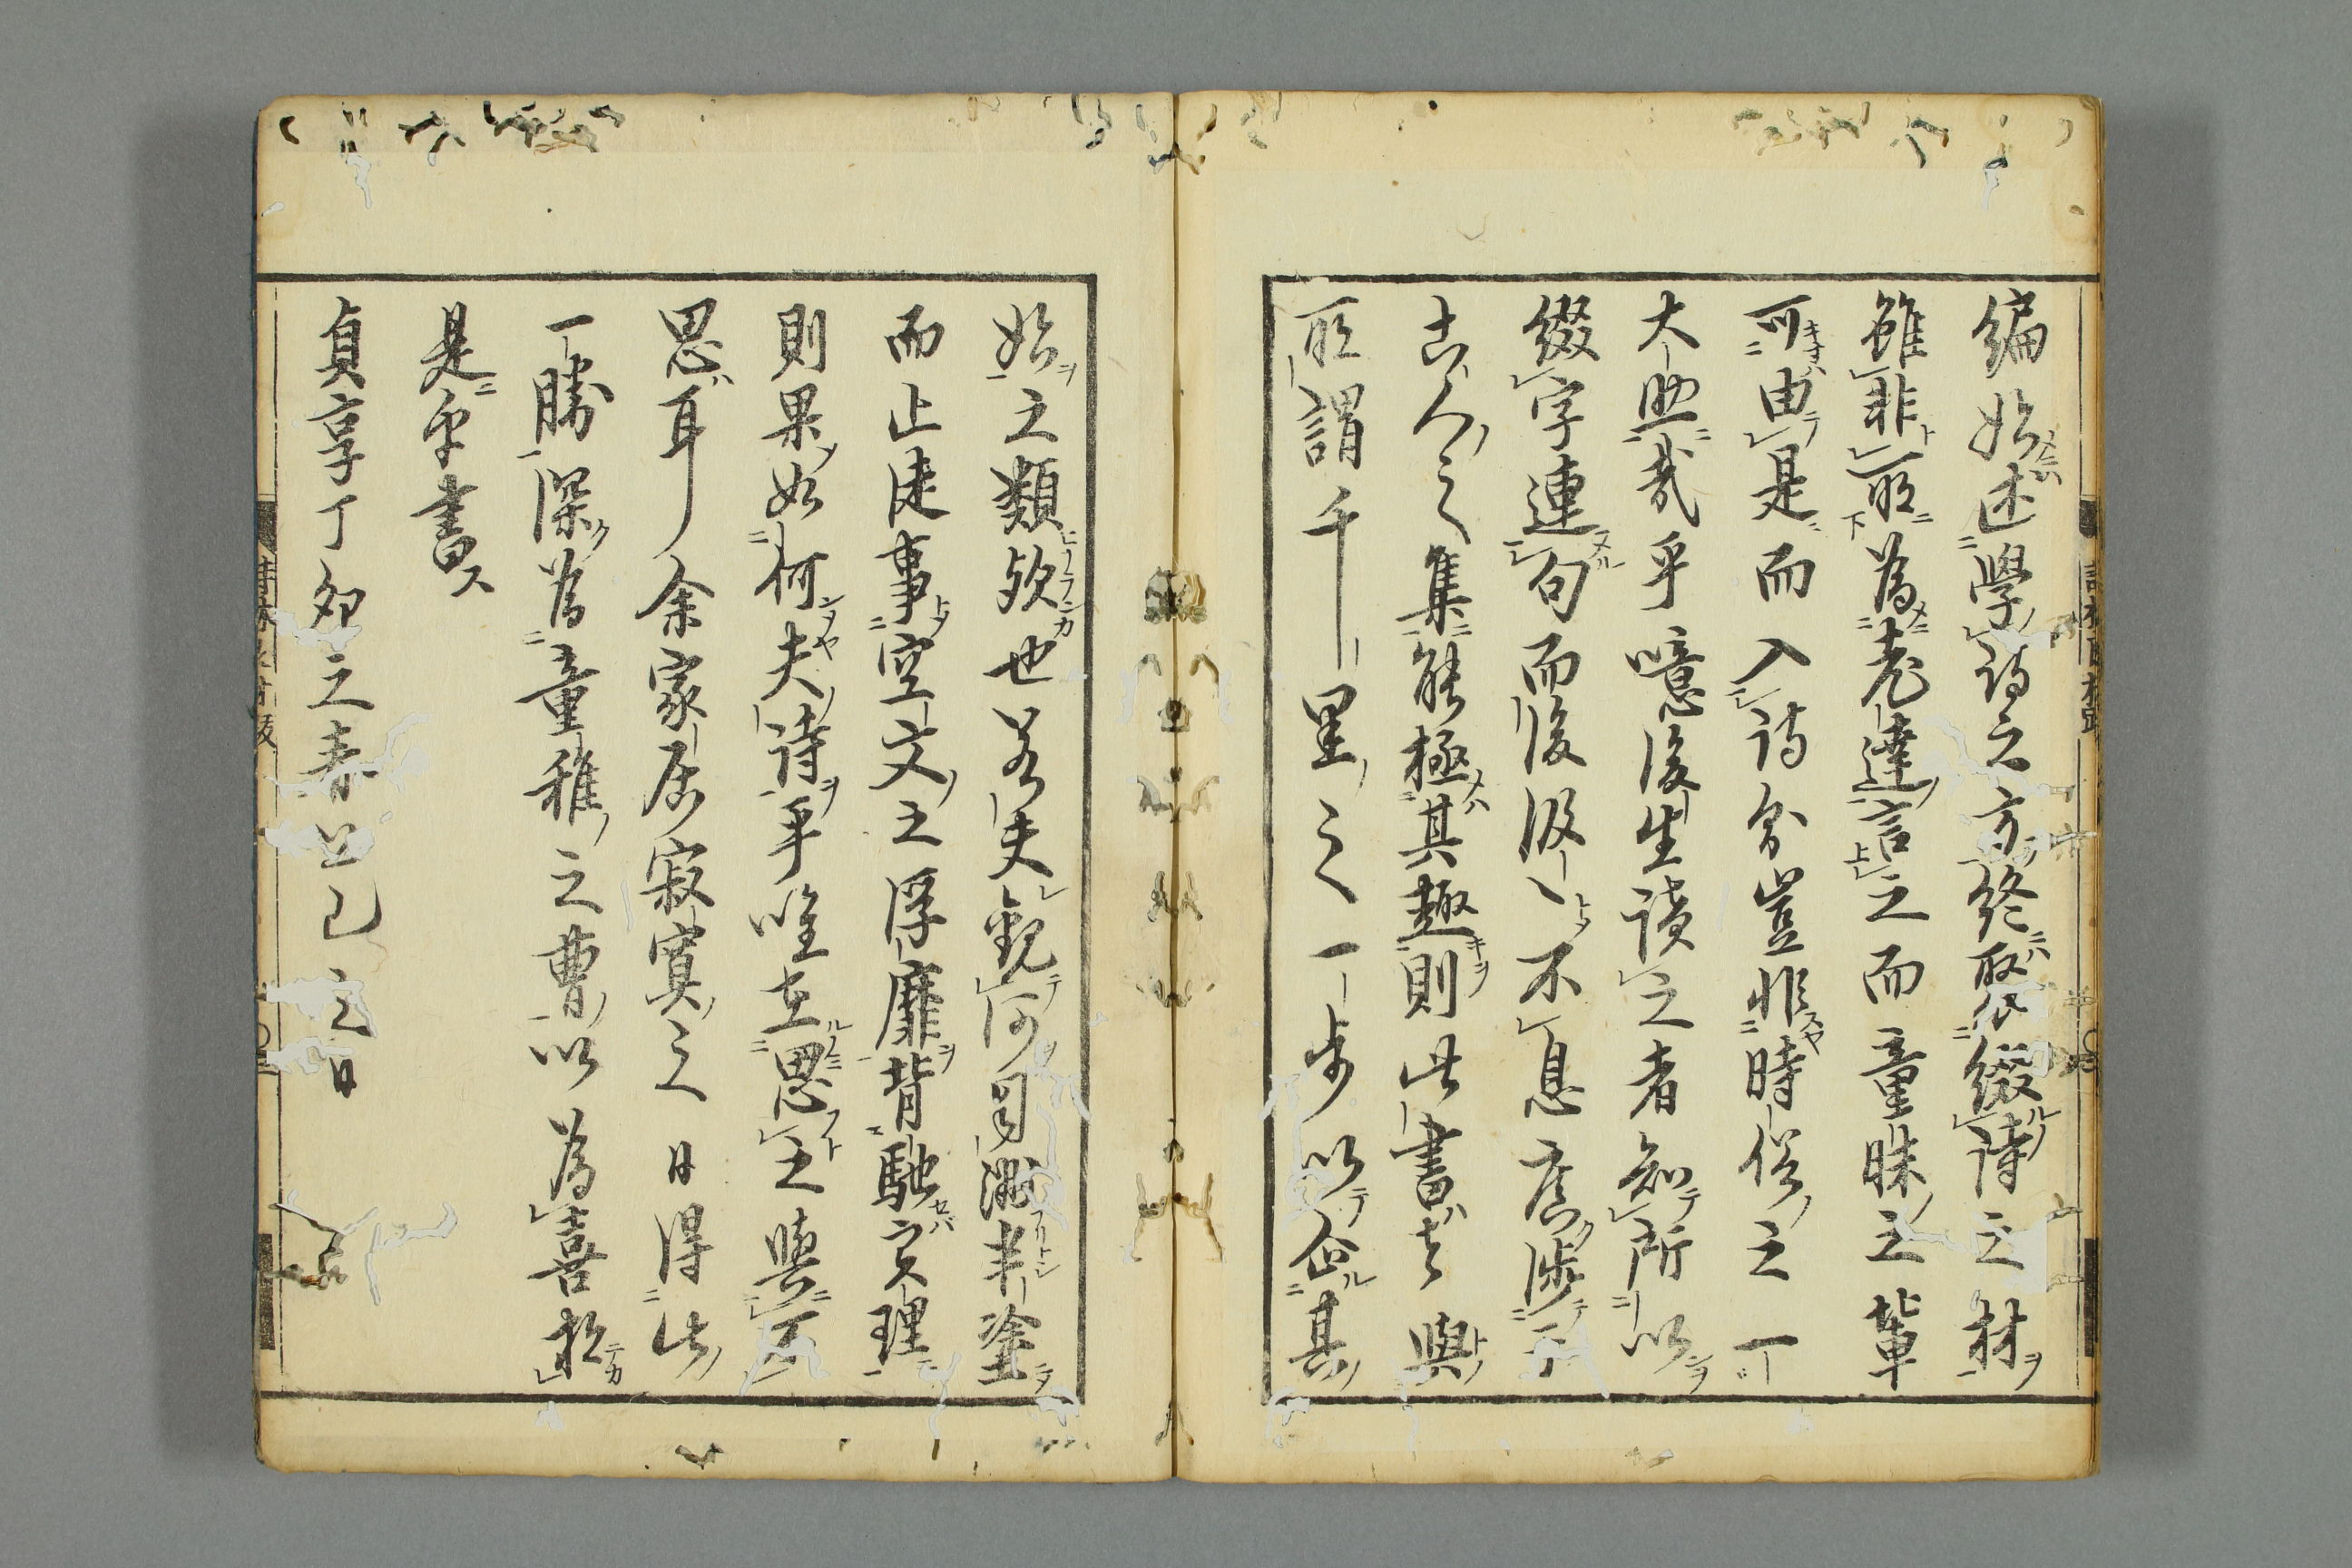 編始述學詩之方終聚綴詩之材
雖非所為老達言之而童昧之輩
可由是而入詩界豈非時俗之一
大助哉乎噫後生讀之者知所以
綴字連句而後汲〻不息廣涉于
古人之集能極其趣則此書者與
所謂千里之一步以企其
始之類欤也若夫観河勺漱半塗
而止徒事空文之浮靡背馳実理
則果如何夫詩乎唯在思之與不
思耳余家居寂寞之日得此
一勝深為童稚之曹以為喜於
是乎書ス
貞享丁卯之春上巳之日